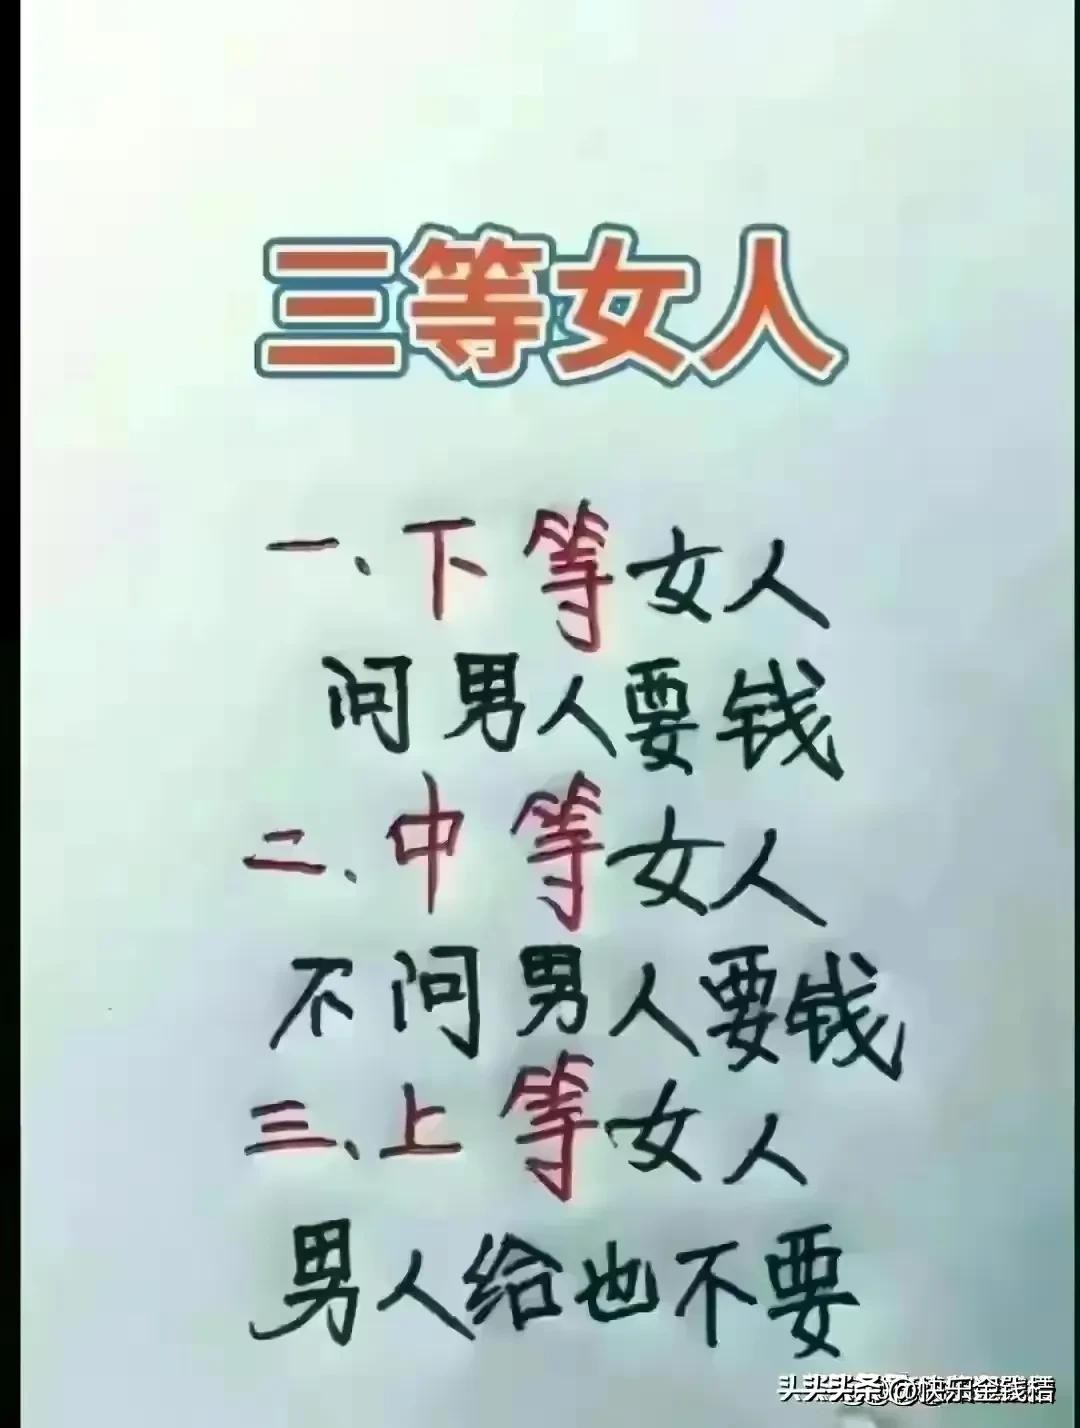 三等女人
一、下等女人
问男人要钱
二、中等女人
不问男人要钱
三、上等女人
男人给也不要